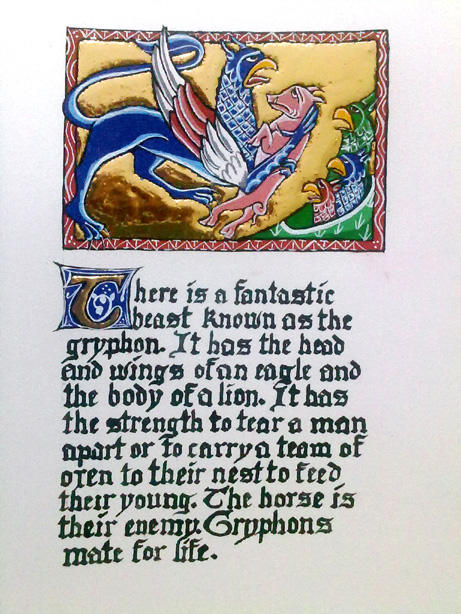 There is a fantastic
beast known as the
gryphon. It has the head
and wings of an eagle and
the body of a lion. It has
the strength to tear a man
apart or to carry a team of
oxen to their nest to feed
their young. The horse is
their enemy. Gryphons
mate for life.